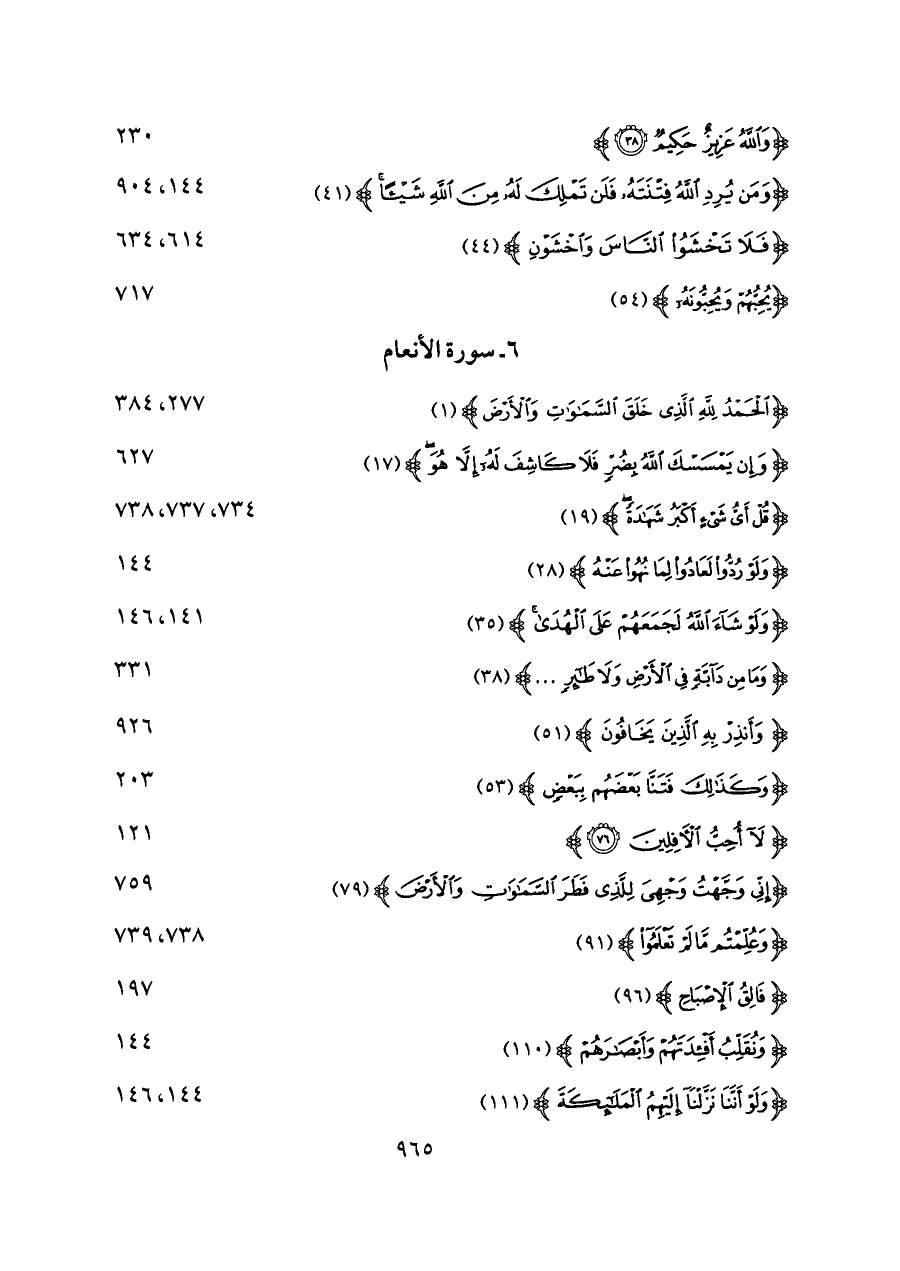 ﴿وَٱللَّهُ عَزِيزٌ حَكِيمٌ ۝٣٨﴾ ٢٣٠
﴿وَمَن يُرِدِ ٱللَّهُ فِتْنَتَهُۥ فَلَن تَمْلِكَ لَهُۥ مِنَ ٱللَّهِ شَيْـًٔا ۚ﴾ (٤١) ١٤٤، ٩٠٤
﴿فَلَا تَخْشَوُا۟ ٱلنَّاسَ وَٱخْشَوْنِ﴾ (٤٤) ٦١٤، ٦٣٤
﴿يُحِبُّهُمْ وَيُحِبُّونَهُۥٓ﴾ (٥٤) ٧١٧
٦ـ سورة الأنعام
﴿ٱلْحَمْدُ لِلَّهِ ٱلَّذِى خَلَقَ ٱلسَّمَـٰوَٰتِ وَٱلْأَرْضَ﴾ (١) ٢٧٧، ٣٨٤
﴿وَإِن يَمْسَسْكَ ٱللَّهُ بِضُرٍّ فَلَا كَاشِفَ لَهُۥٓ إِلَّا هُوَ ۖ﴾ (١٧) ٦٢٧
﴿قُلْ أَىُّ شَىْءٍ أَكْبَرُ شَهَـٰدَةً ۖ﴾ (١٩) ٧٣٤، ٧٣٧، ٧٣٨
﴿وَلَوْ رُدُّوا۟ لَعَادُوا۟ لِمَا نُهُوا۟ عَنْهُ﴾ (٢٨) ١٤٤
﴿وَلَوْ شَآءَ ٱللَّهُ لَجَمَعَهُمْ عَلَى ٱلْهُدَىٰ ۚ﴾ (٣٥) ١٤١، ١٤٦
﴿وَمَا مِن دَآبَّةٍ فِى ٱلْأَرْضِ وَلَا طَـٰٓئِرٍ ...﴾ (٣٨) ٣٣١
﴿وَأَنذِرْ بِهِ ٱلَّذِينَ يَخَافُونَ﴾ (٥١) ٩٢٦
﴿وَكَذَٰلِكَ فَتَنَّا بَعْضَهُم بِبَعْضٍ﴾ (٥٣) ٢٠٣
﴿لَآ أُحِبُّ ٱلْـَٔافِلِينَ ۝٧٦﴾ ١٢١
﴿إِنِّى وَجَّهْتُ وَجْهِىَ لِلَّذِى فَطَرَ ٱلسَّمَـٰوَٰتِ وَٱلْأَرْضَ﴾ (٧٩) ٧٥٩
﴿وَعُلِّمْتُم مَّا لَمْ تَعْلَمُوٓا۟﴾ (٩١) ٧٣٨، ٧٣٩
﴿فَالِقُ ٱلْإِصْبَاحِ﴾ (٩٦) ١٩٧
﴿وَنُقَلِّبُ أَفْـِٔدَتَهُمْ وَأَبْصَـٰرَهُمْ﴾ (١١٠) ١٤٤
﴿وَلَوْ أَنَّنَا نَزَّلْنَآ إِلَيْهِمُ ٱلْمَلَـٰٓئِكَةَ﴾ (١١١) ١٤٤، ١٤٦
٩٦٥